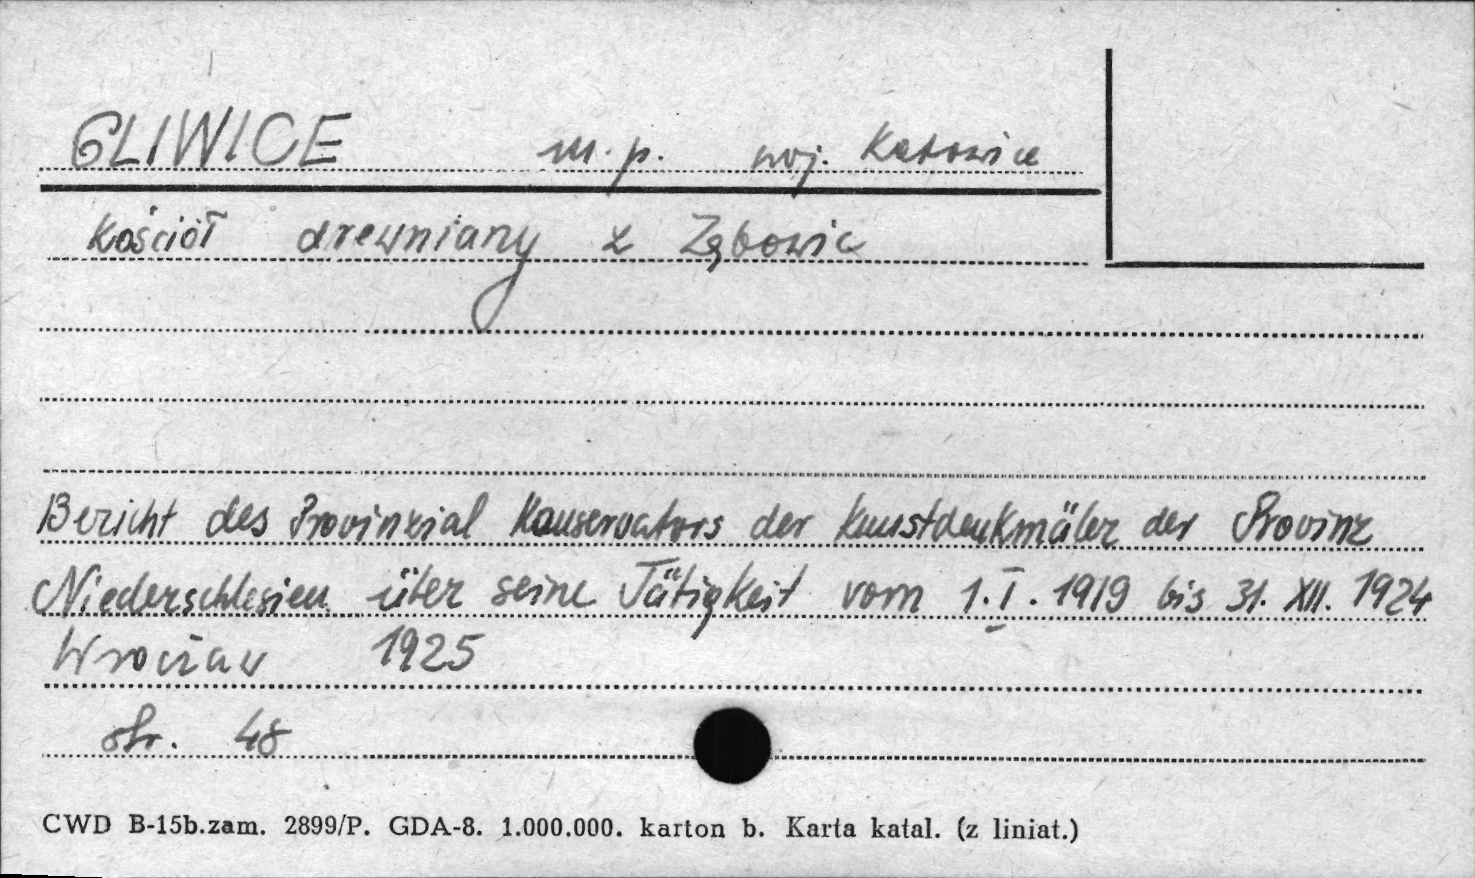 GLIWICE m.p. woj. Katowice
Kościół drewniany z Zębowic
Bericht des Provinzial Konservators der Kunstdenkmäler der Provinz
Niederschlesien über seine Tätigkeit vom 1.I.1919 bis 31.XII.1924
Wrocław 1925
str. 48
CWD B-15b.zam. 2899/P. GDA-8. 1.000.000. karton b. Karta katal. (z liniat.)